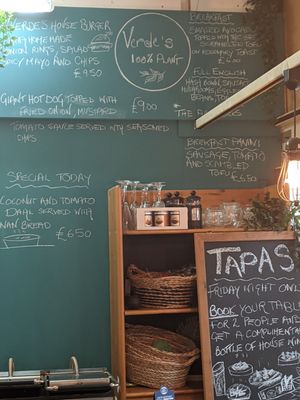 VERDE'S HOUSE BURGER
HOMEMADE
ONION RINGS, SALAD
SPICY MAYO AND CHIPS
£9.50
GIANT HOT DOG TOPPED WITH
FRIED ONION, MUSTARD
£9.00
TOMATO SAUCE SERVED WITH SEASONED
CHIPS
SPECIAL TODAY
COCONUT AND TOMATO
DAHL SERVED WITH
NAN BREAD
£6.50
Verde's
100% PLANT
BREAKFAST
SMASHED AVOCADO
TOPPED WITH
SCRAMBLED TOFU
ON ROSEMARY TOAST
£6.00
FULL ENGLISH
HASH BROWN, SAUSAGE
MUSHROOMS,
BEANS,
BREAKFAST PANINI
SAUSAGE, TOMATO
AND SCRAMBLED
TOFU
£6.50
TAPAS
FRIDAY NIGHT ONLY
BOOK YOUR TABLE
FOR 2 PEOPLE AND
GET A COMPLIMENTARY
BOTTLE OF HOUSE WINE